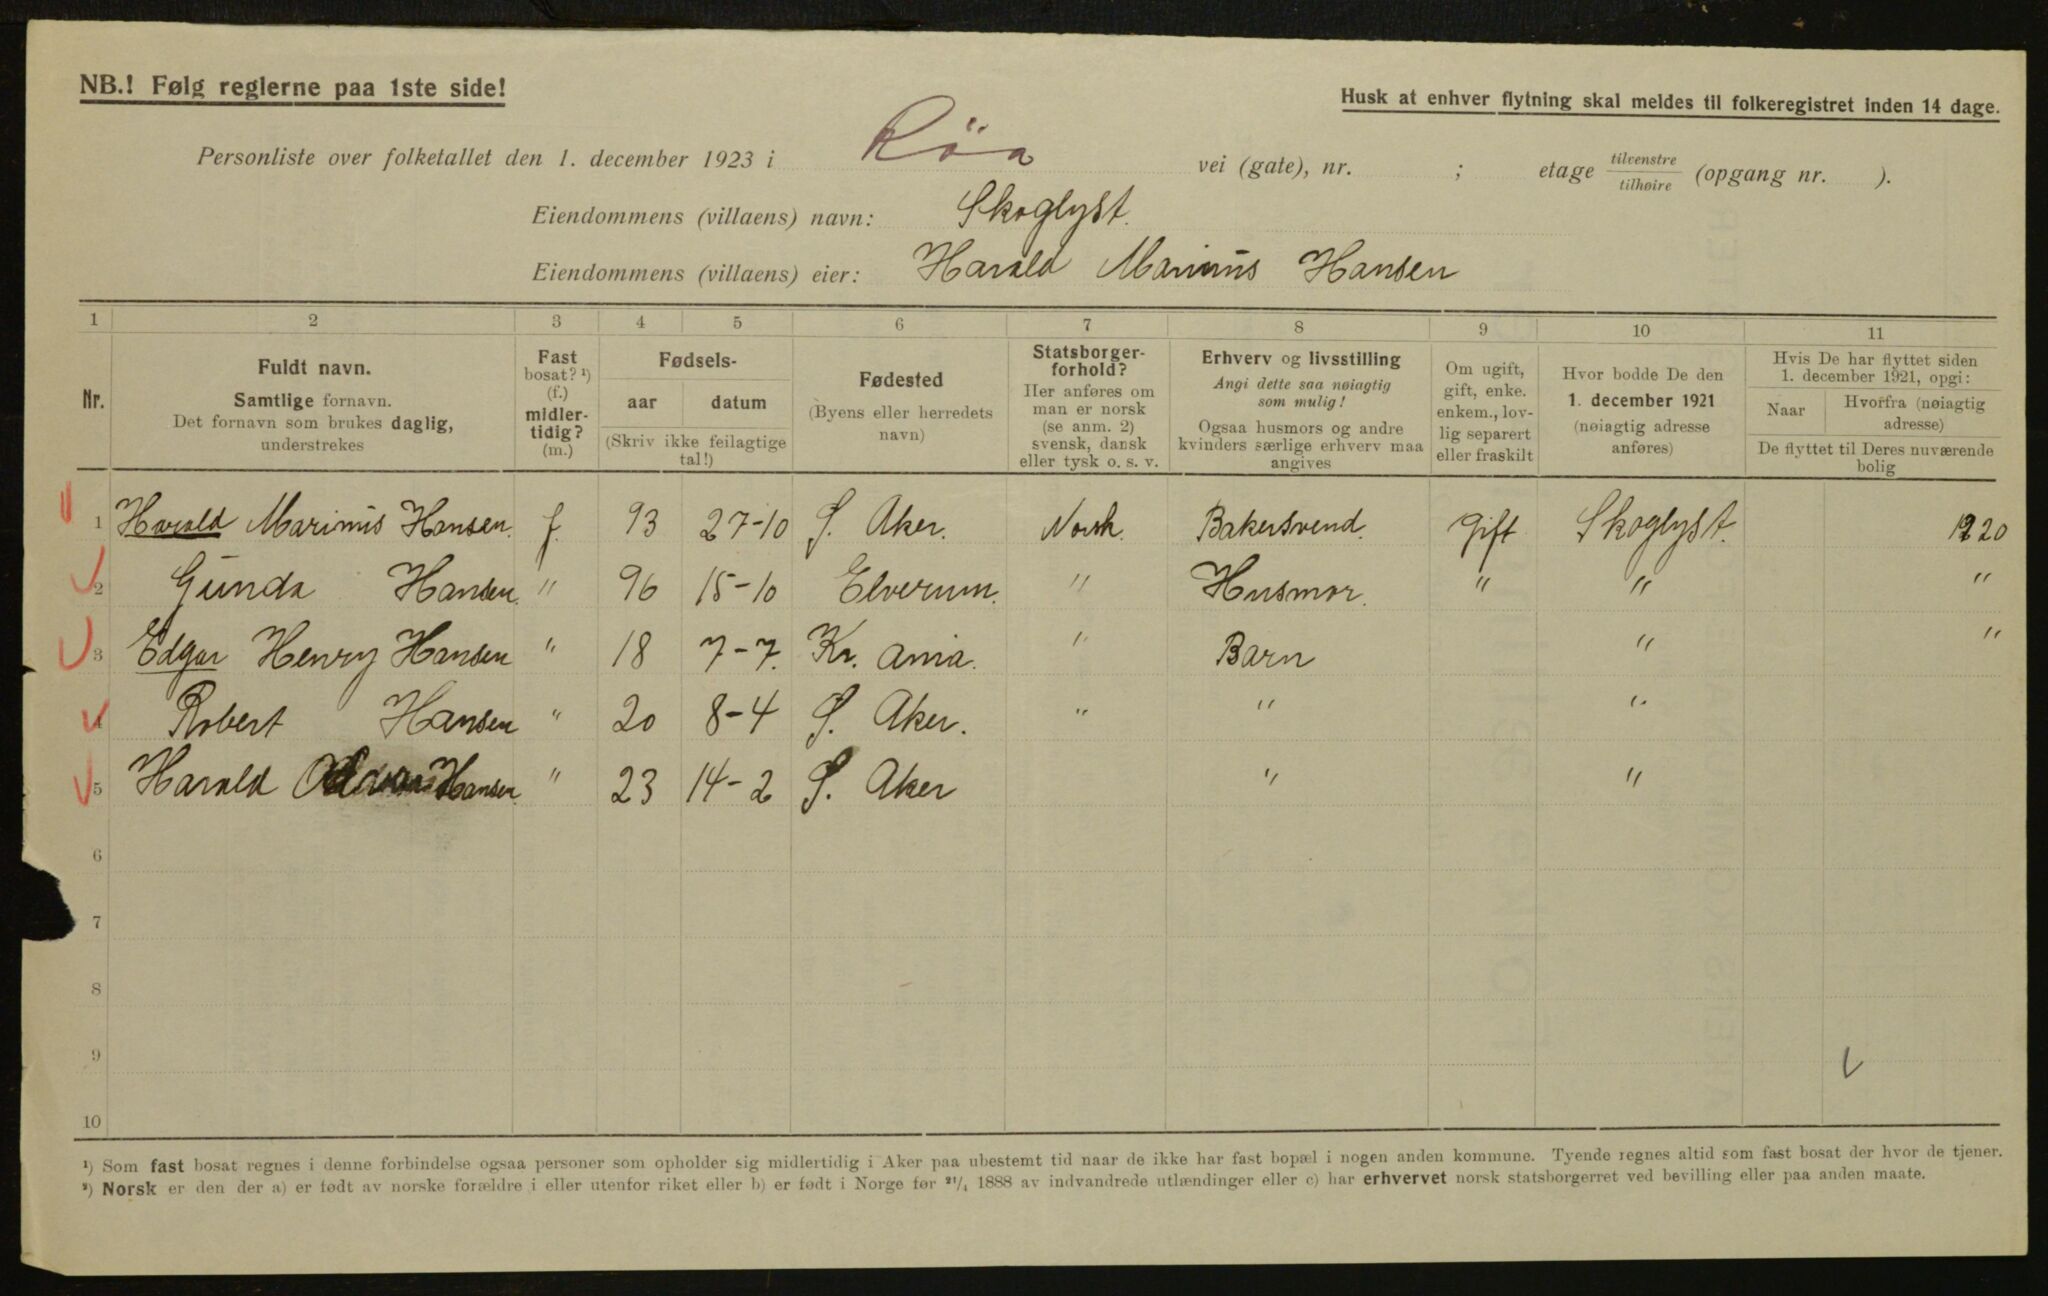 NB.! Følg reglerne paa 1ste side!
Husk at enhver flytning skal meldes til folkeregistret inden 14 dage.
Personliste over folketallet den 1. december 1923 i Röa vei (gate), nr. ; etage tilvenstre / tilhøire (opgang nr. ).
Eiendommens (villaens) navn: Skoglyst.
Eiendommens (villaens) eier: Harald Marinus Hansen
1 2 3 4 5 6 7 8 9 10 11
Nr.
Fuldt navn.
Samtlige fornavn.
Det fornavn som brukes daglig,
understrekes
Fast
bosat? ¹)
(f.)
midler-
tidig?
(m.)
Fødsels-
aar datum
(Skriv ikke feilagtige
tal!)
Fødested
(Byens eller herredets
navn)
Statsborger-
forhold?
Her anføres om
man er norsk
(se anm. 2)
svensk, dansk
eller tysk o. s. v.
Erhverv og livsstilling
Angi dette saa nøiagtig
som mulig!
Ogsaa husmors og andre
kvinders særlige erhverv maa
angives
Om ugift,
gift, enke.
enkem., lov-
lig separert
eller fraskilt
Hvor bodde De den
1. december 1921
(nøiagtig adresse
anføres)
Hvis De har flyttet siden
1. december 1921, opgi:
Naar
Hvorfra (nøiagtig
adresse)
De flyttet til Deres nuværende
bolig
1 Harald Marinus Hansen. f. 93 27-10 Ø. Aker. Norsk. Bakersvend. Gift Skoglyst. 1920
2 Gunda Hansen. " 96 15-10 Elverum. " Husmor. " " "
3 Edgar Henry Hansen " 18 7-7. Kr. ania. " Barn " "
4 Robert Hansen " 20 8-4 Ø. Aker. " " "
5 Harald Hansen. " 23 14-2 Ø. Aker " "
6
7
8
9
10
¹) Som fast bosat regnes i denne forbindelse ogsaa personer som opholder sig midlertidig i Aker paa ubestemt tid naar de ikke har fast bopæl i nogen anden kommune. Tyende regnes altid som fast bosat der hvor de tjener.
²) Norsk er den der a) er født av norske forældre i eller utenfor riket eller b) er født i Norge før ²¹/₄ 1888 av indvandrede utlændinger eller c) har erhvervet norsk statsborgerret ved bevilling eller paa anden maate.